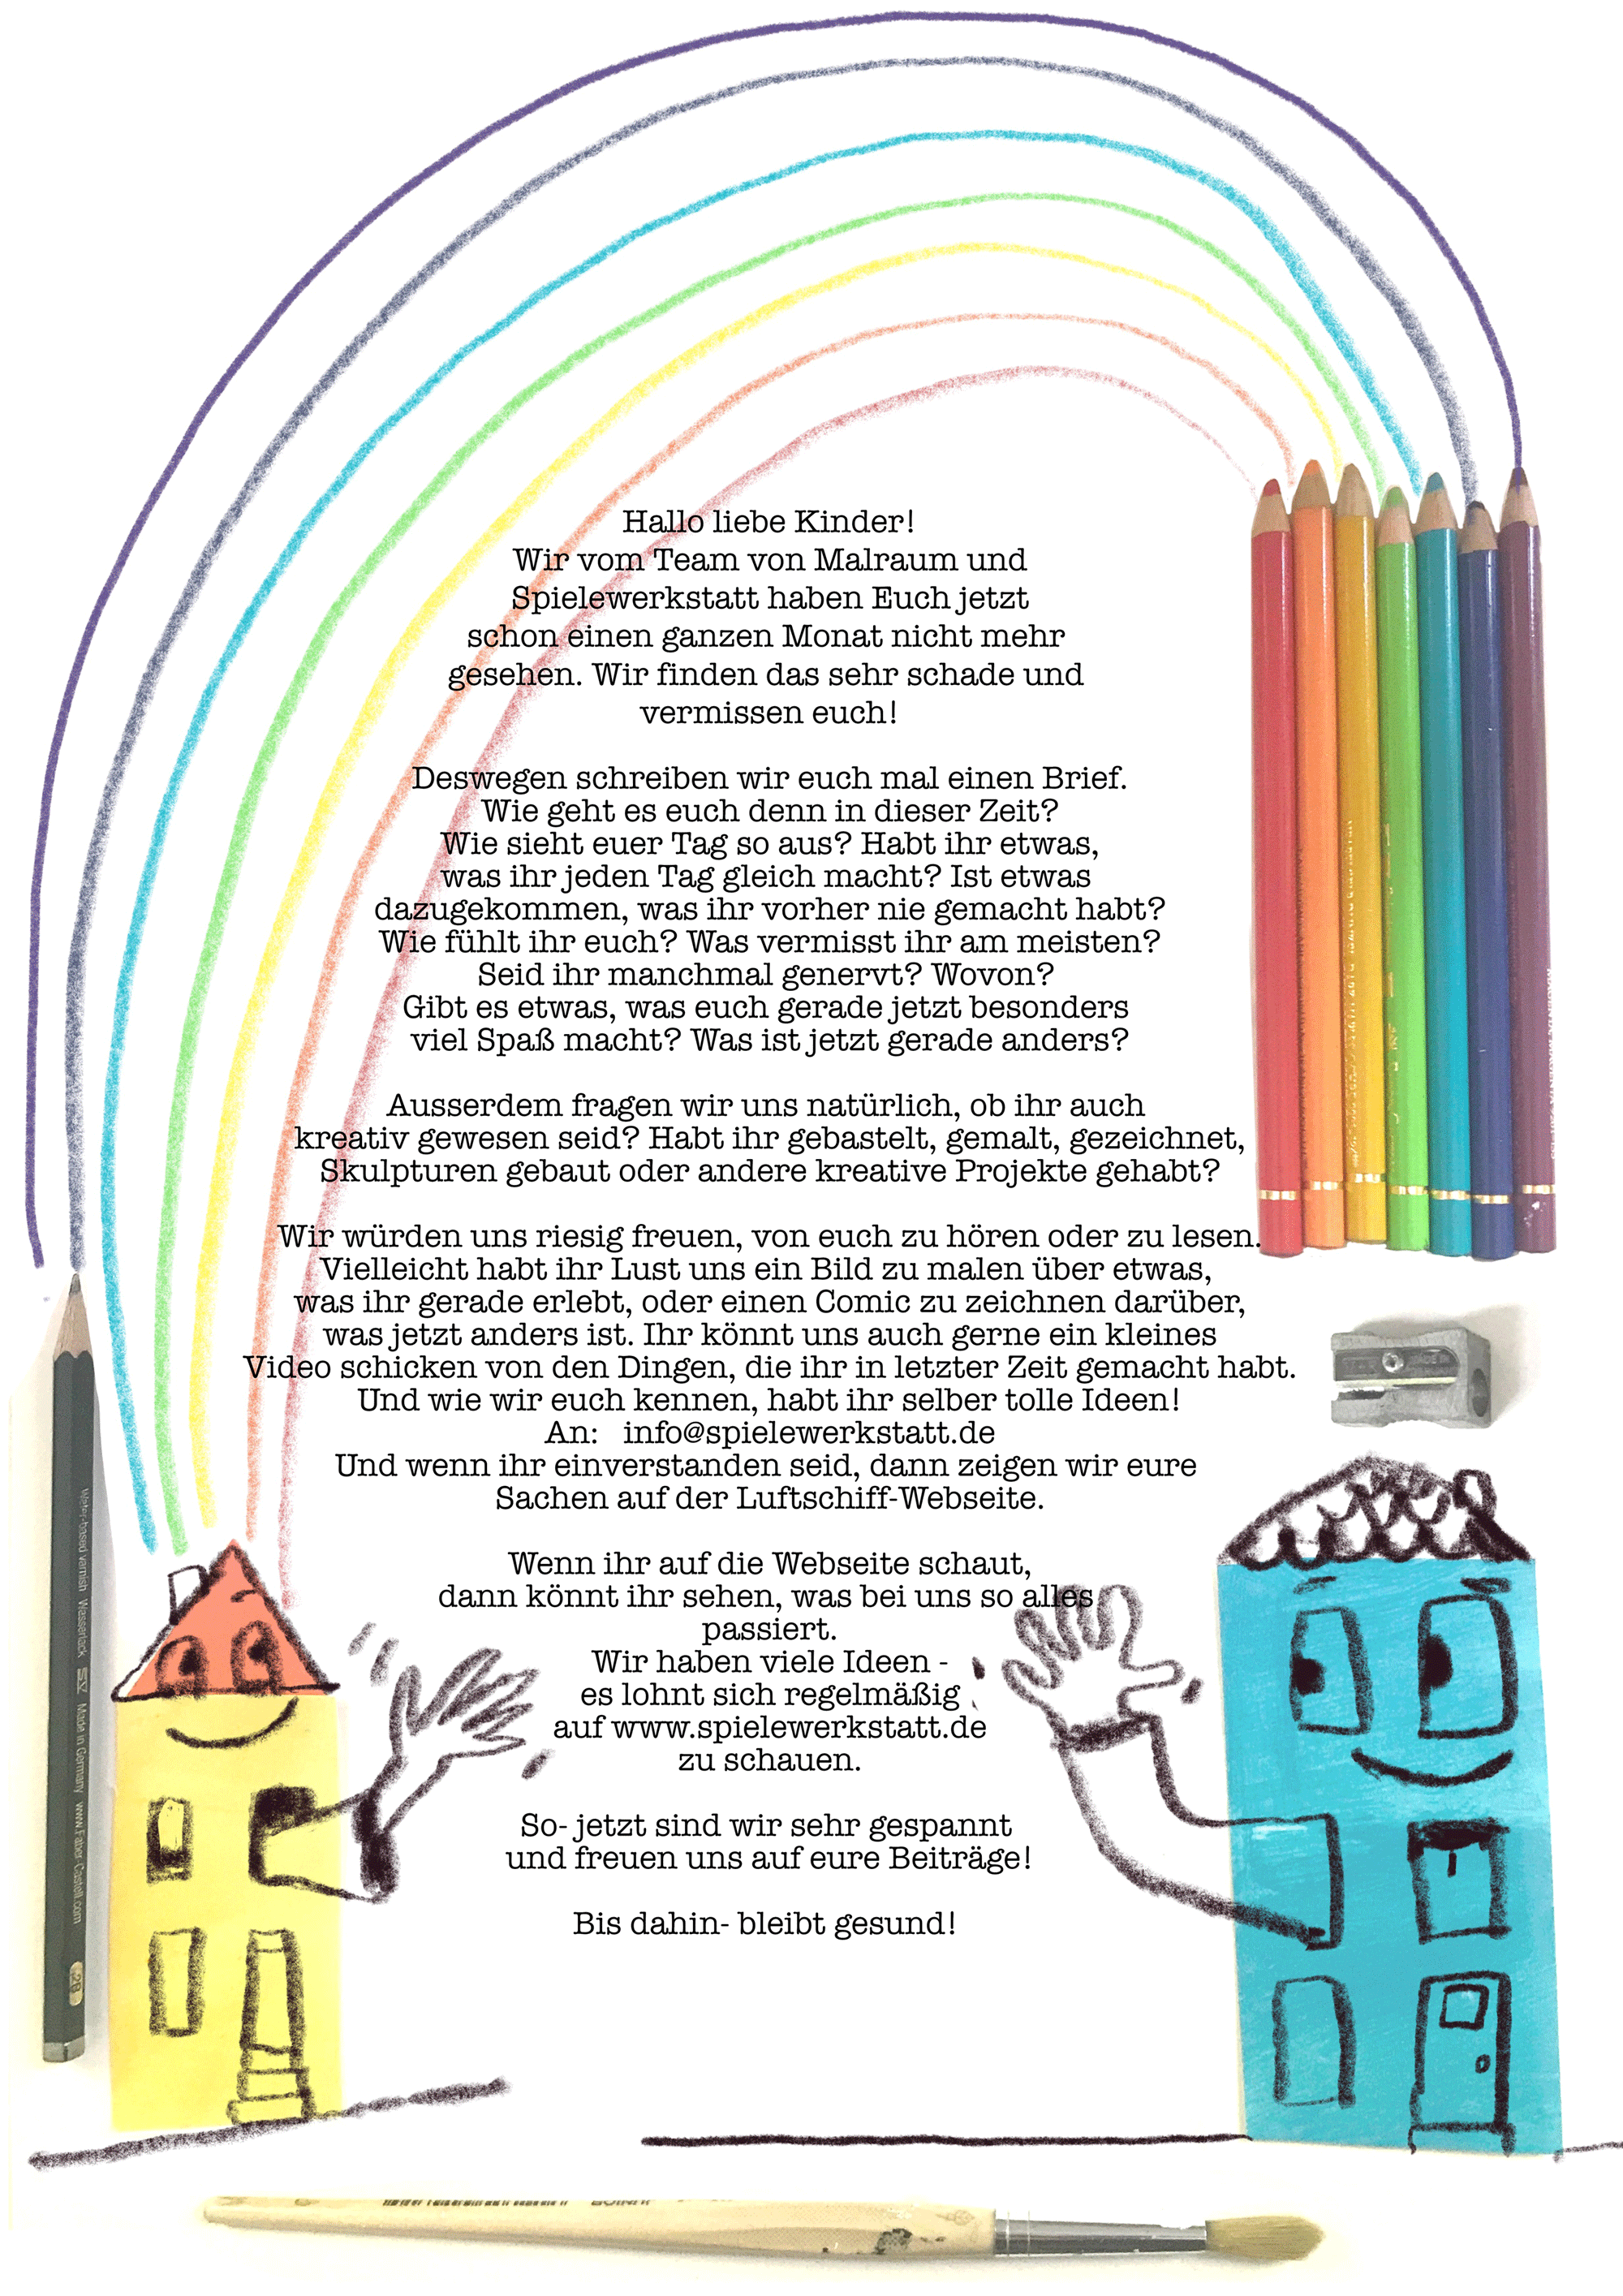 Hallo liebe Kinder!
Wir vom Team von Malraum und
Spielewerkstatt haben Euch jetzt
schon einen ganzen Monat nicht mehr
gesehen. Wir finden das sehr schade und
vermissen euch!
Deswegen schreiben wir euch mal einen Brief.
Wie geht es euch denn in dieser Zeit?
Wie sieht euer Tag so aus? Habt ihr etwas,
was ihr jeden Tag gleich macht? Ist etwas
dazugekommen, was ihr vorher nie gemacht habt?
Wie fühlt ihr euch? Was vermisst ihr am meisten?
Seid ihr manchmal genervt? Wovon?
Gibt es etwas, was euch gerade jetzt besonders
viel Spaß macht? Was ist jetzt gerade anders?
Ausserdem fragen wir uns natürlich, ob ihr auch
kreativ gewesen seid? Habt ihr gebastelt, gemalt, gezeichnet,
Skulpturen gebaut oder andere kreative Projekte gehabt?
Wir würden uns riesig freuen, von euch zu hören oder zu lesen.
Vielleicht habt ihr Lust uns ein Bild zu malen über etwas,
was ihr gerade erlebt, oder einen Comic zu zeichnen darüber,
was jetzt anders ist. Ihr könnt uns auch gerne ein kleines
Video schicken von den Dingen, die ihr in letzter Zeit gemacht habt.
Und wie wir euch kennen, habt ihr selber tolle Ideen!
An: info@spielewerkstatt.de
Und wenn ihr einverstanden seid, dann zeigen wir eure
Sachen auf der Luftschiff-Webseite.
Wenn ihr auf die Webseite schaut,
dann könnt ihr sehen, was bei uns so alles
passiert.
Wir haben viele Ideen -
es lohnt sich regelmäßig
auf www.spielewerkstatt.de
zu schauen.
So- jetzt sind wir sehr gespannt
und freuen uns auf eure Beiträge!
Bis dahin- bleibt gesund!
Water-based varnish Wasserlack Made in Germany www.Faber-Castell.com 2B